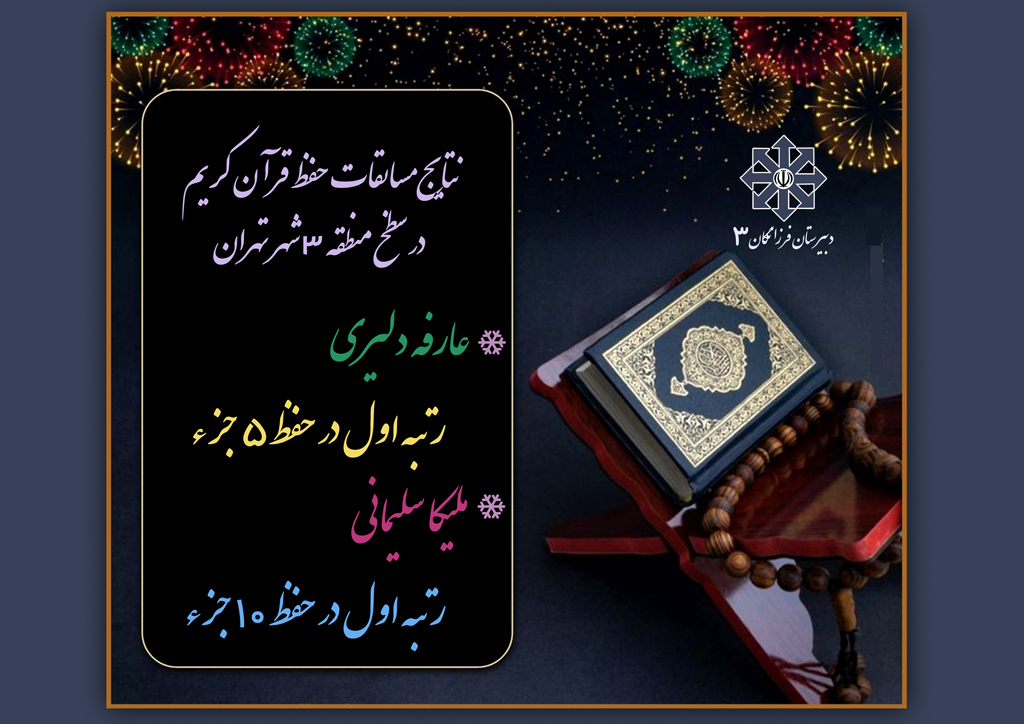 نتایج مسابقات حفظ قرآن کریم
در سطح منطقه ۳ شهر تهران
عارفه دلیری
رتبه اول در حفظ ۵ جزء
ملیکا سلیمانی
رتبه اول در حفظ ۱۰ جزء
دبیرستان فرزانگان ۳